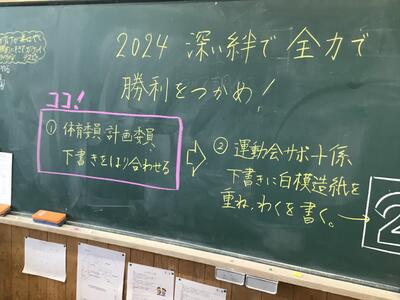 2024 深い絆で全力で
勝利をつかめ!
ココ!
① 体育委員、計画委員、
下書きをはり合わせる
② 運動会サポート係
下書きに白模造紙を
重ね、わくを書く。
2